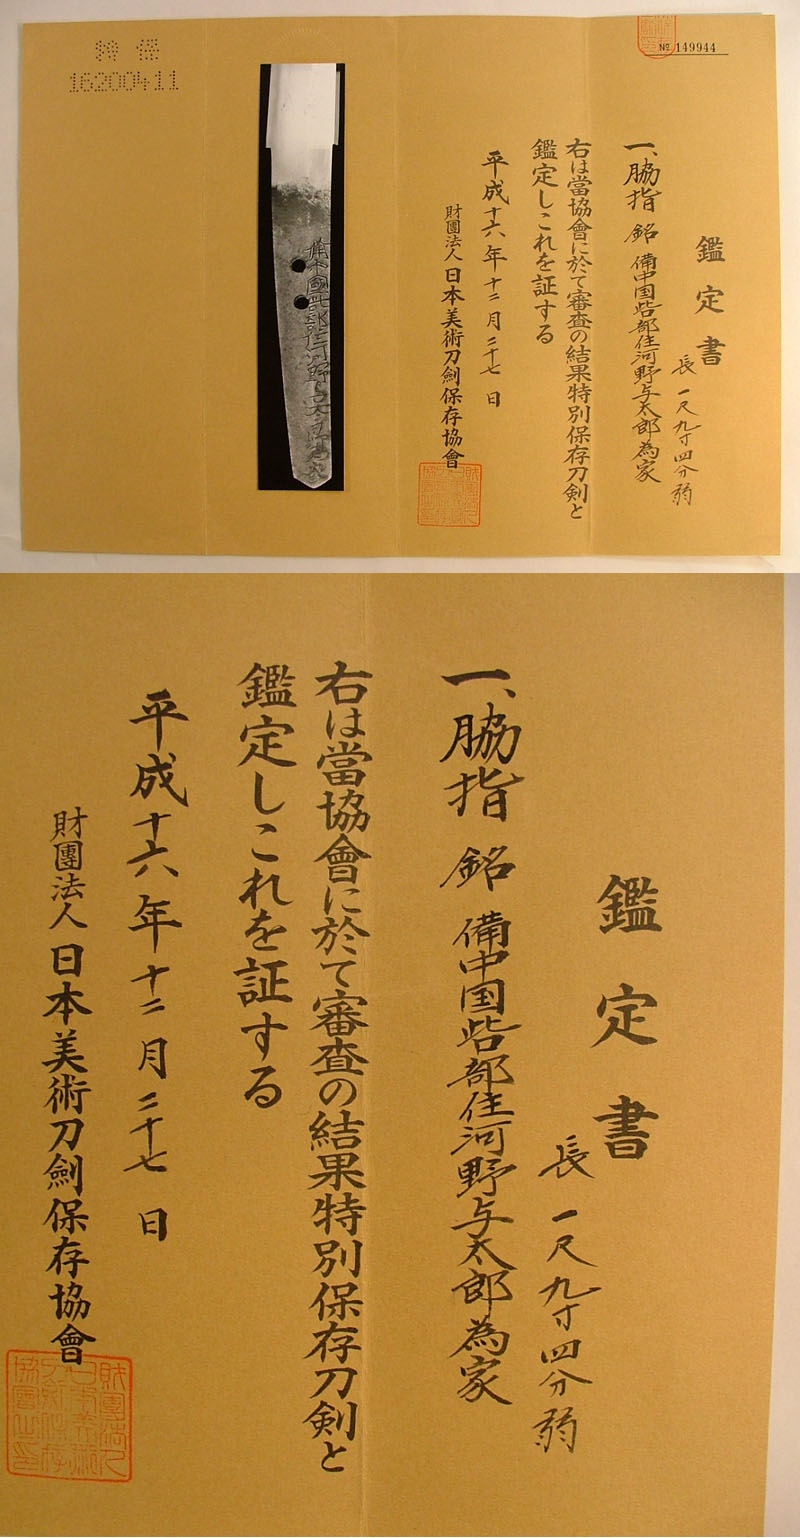 特保
16200411
№ 149944
鑑定書
長 一尺九寸四分弱
一、脇指 銘 備中国呰部住河野与太郎為家
右は當協會に於て審査の結果特別保存刀剣と
鑑定しこれを証する
平成十六年十二月二十七日
財團法人日本美術刀劍保存協會
備中國呰部住河野与太郎為家
鑑定書
長 一尺九寸四分弱
一、脇指 銘 備中国呰部住河野与太郎為家
右は當協會に於て審査の結果特別保存刀剣と
鑑定しこれを証する
平成十六年十二月二十七日
財團法人日本美術刀劍保存協會